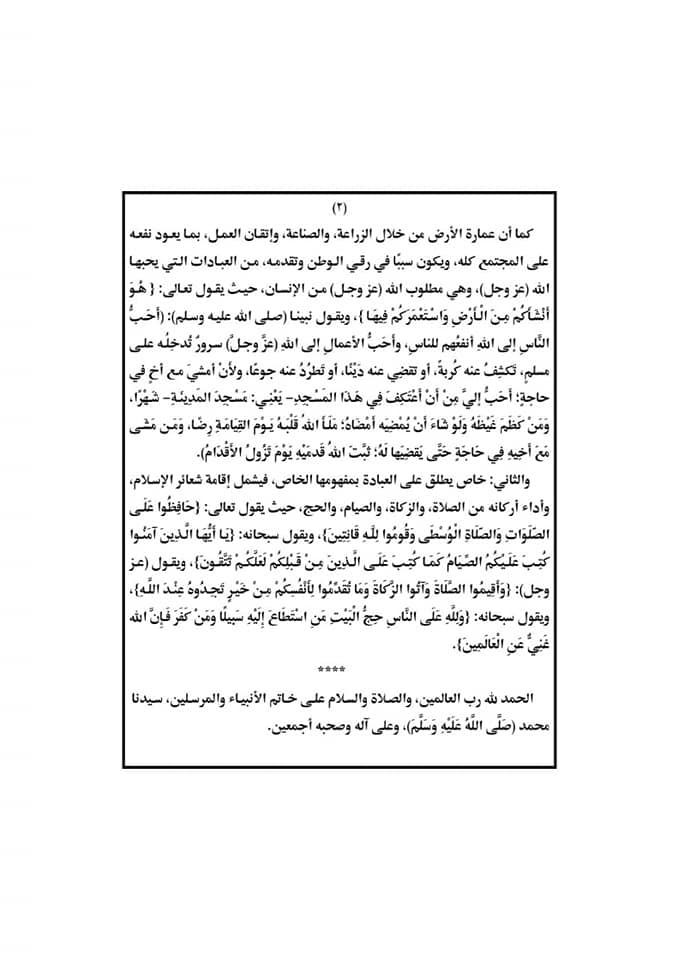 (٢)
كما أن عمارة الأرض من خلال الزراعة، والصناعة، وإتقان العمل، بما يعود نفعه
على المجتمع كله، ويكون سببًا في رقي الوطن وتقدمه، من العبادات التي يحبها
الله (عز وجل)، وهي مطلوب الله (عز وجل) من الإنسان، حيث يقول تعالى: {هُوَ
أَنْشَأَكُمْ مِنَ الْأَرْضِ وَاسْتَعْمَرَكُمْ فِيهَا}، ويقول نبينا (صلى الله عليه وسلم): (أَحَبُّ
النَّاسِ إلى اللهِ أنفعُهم للناسِ، وأحَبُّ الأعمالِ إلى اللهِ (عزَّ وجلَّ) سرورٌ تُدخِلُه على
مسلمٍ، تَكشِفُ عنه كُربةً، أو تقضِي عنه دَيْنًا، أو تَطرُدُ عنه جوعًا، ولأنْ أمشيَ مع أخٍ في
حاجةٍ؛ أَحَبُّ إليَّ مِنْ أنْ أَعْتَكِفَ فِي هَذَا المَسْجِدِ- يَعْنِي: مَسْجِدَ المَدِينَةِ- شَهْرًا،
وَمَنْ كَظَمَ غَيْظَهُ وَلَوْ شَاءَ أَنْ يُمْضِيَه أَمْضَاهُ؛ مَلَأَ اللهُ قَلْبَهُ يَوْمَ القِيَامَةِ رِضًا، وَمَنْ مَشَى
مَعَ أَخِيهِ فِي حَاجَةٍ حَتَّى يَقضِيَها لَهُ؛ ثبَّتَ اللهُ قَدمَيْهِ يَوْمَ تَزُولُ الأَقْدَامُ).
والثاني: خاص يطلق على العبادة بمفهومها الخاص، فيشمل إقامة شعائر الإسلام،
وأداء أركانه من الصلاة، والزكاة، والصيام، والحج، حيث يقول تعالى: {حَافِظُوا عَلَى
الصَّلَوَاتِ وَالصَّلَاةِ الْوُسْطَى وَقُومُوا لِلَّهِ قَانِتِينَ}، ويقول سبحانه: {يَا أَيُّهَا الَّذِينَ آمَنُوا
كُتِبَ عَلَيْكُمُ الصِّيَامُ كَمَا كُتِبَ عَلَى الَّذِينَ مِنْ قَبْلِكُمْ لَعَلَّكُمْ تَتَّقُونَ}، ويقول (عز
وجل): {وَأَقِيمُوا الصَّلَاةَ وَآتُوا الزَّكَاةَ وَمَا تُقَدِّمُوا لِأَنْفُسِكُمْ مِنْ خَيْرٍ تَجِدُوهُ عِنْدَ اللَّهِ}،
ويقول سبحانه: {وَلِلَّهِ عَلَى النَّاسِ حِجُّ الْبَيْتِ مَنِ اسْتَطَاعَ إِلَيْهِ سَبِيلًا وَمَنْ كَفَرَ فَإِنَّ الله
غَنِيٌّ عَنِ الْعَالَمِينَ}.
****
الحمد لله رب العالمين، والصلاة والسلام على خاتم الأنبياء والمرسلين، سيدنا
محمد (صَلَّى اللَّهُ عَلَيْهِ وَسَلَّمَ)، وعلى آله وصحبه أجمعين.